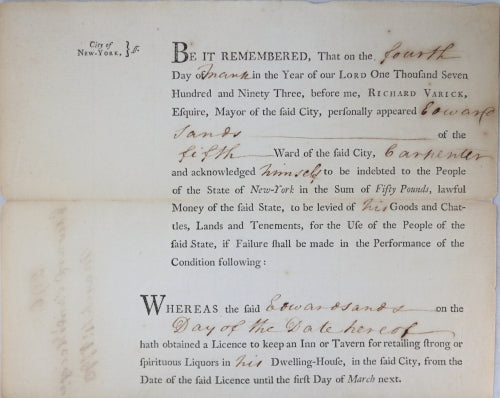 City of
NEW-YORK, } ſs.
BE IT REMEMBERED, That on the fourth
Day of March in the Year of our LORD One Thouſand Seven
Hundred and Ninety Three, before me, RICHARD VARICK,
Eſquire, Mayor of the ſaid City, perſonally appeared Edward
Sands of the
fifth Ward of the ſaid City, Carpenter
and acknowledged himself to be indebted to the People
of the State of New-York in the Sum of Fifty Pounds, lawful
Money of the ſaid State, to be levied of his Goods and Chat-
tles, Lands and Tenements, for the Uſe of the People of the
ſaid State, if Failure ſhall be made in the Performance of the
Condition following:
WHEREAS the ſaid Edward Sands on the
Day of the Date hereof
hath obtained a Licence to keep an Inn or Tavern for retailing ſtrong or
ſpirituous Liquors in his Dwelling-Houſe, in the ſaid City, from the
Date of the ſaid Licence until the firſt Day of March next.